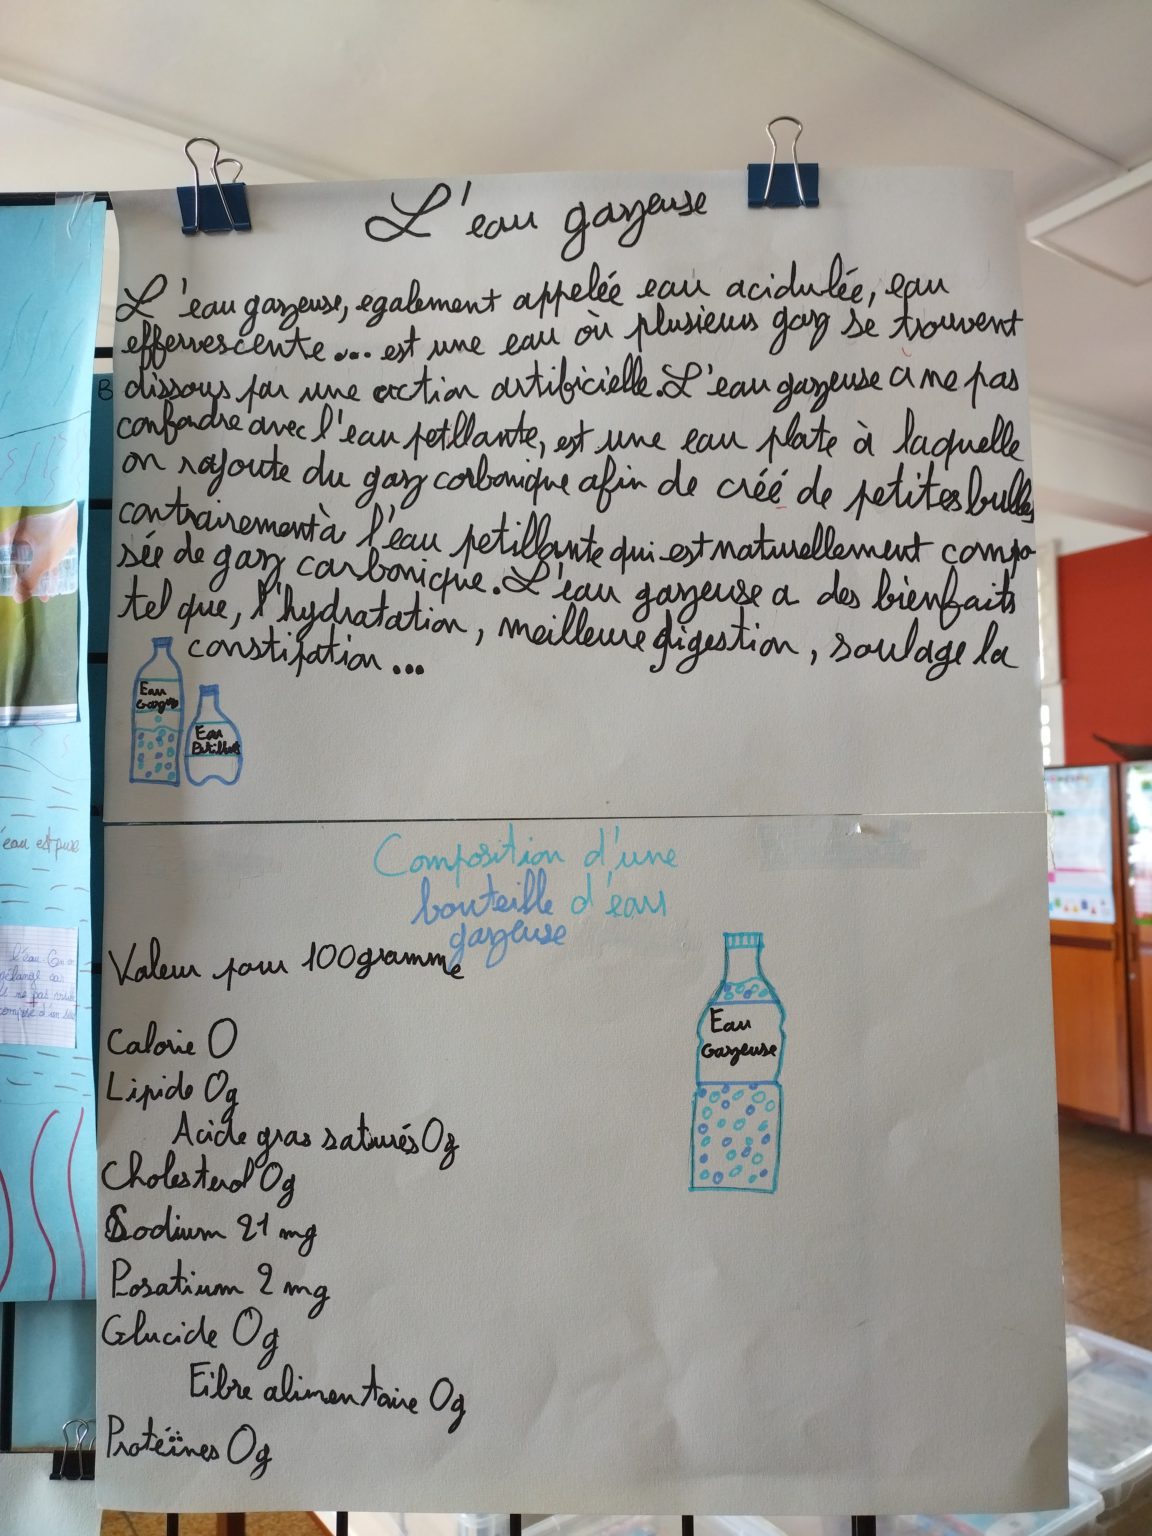 L'eau gazeuse
L'eau gazeuse, egalement appelée eau acidulée, eau
effervescente... est une eau où plusieurs gaz se trouvent
dissous par une action artificielle. L'eau gazeuse à ne pas
confondre avec l'eau petillante, est une eau plate à laquelle
on rajoute du gaz carbonique afin de créé de petites bulles
contrairement à l'eau petillante qui est naturellement compo-
sée de gaz carbonique. L'eau gazeuse a des bienfaits
tel que, l'hydratation, meilleure digestion, soulage la
constipation...
Eau
Gazeuse
Eau
Composition d'une
bouteille d'eau
gazeuse
Valeur pour 100gramme
Calorie 0
Lipide 0g
Acide gras saturés 0g
Cholesterol 0g
Sodium 21 mg
Posatium 2 mg
Glucide 0g
Fibre alimentaire 0g
Protéïnes 0g
Eau
Gazeuse
B
eau est pure
l'eau
pas